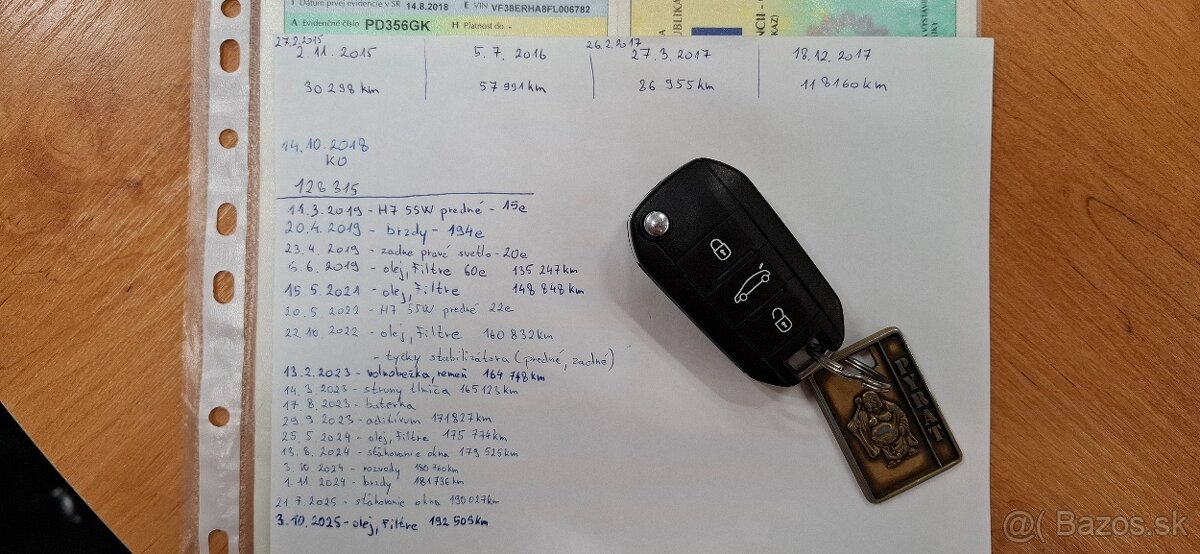 I Dátum prvej evidencie v SR 14.8.2018 E VIN VF38ERHA8FL006782
A Evidenčné číslo PD356GK H Platnosť do -
PUBLIKA
27.2.2015 26.2.2017
2.11.2015 5.7.2016 27.3.2017 18.12.2017
30 298 km 57 991 km 86 955 km 118160 km
14.10.2018
KO
128 315
11.3.2019 - H7 55W predné - 15e
20.4.2019 - brzdy - 194e
23.4.2019 - zadne pravé svetlo - 20e
5.6.2019 - olej, Filtre 60e 135 247km
15.5.2021 - olej, Filtre 148 848 km
20.5.2022 - H7 55W predné 22e
22.10.2022 - olej, Filtre 160 832 km
- tyčky stabilizátora (predné, zadné)
13.2.2023 - volnobežka, remeň 164 748 km
14.3.2023 - struny tlmiča 165 123 km
17.8.2023 - baterka
29.9.2023 - aditívum 171 827 km
25.5.2024 - olej, Filtre 175 774 km
13.8.2024 - sťahovanie okna 179 525 km
3.10.2024 - rozvody 180 760 km
1.11.2024 - brzdy 181 796 km
21.7.2025 - sťahovanie okna 190 027 km
3.10.2025 - olej, Filtre 192 505 km
PYRAT
@( Bazos.sk